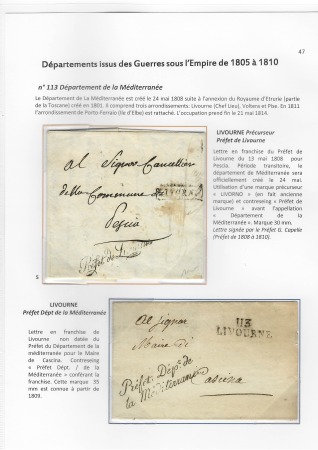 47
Départements issus des Guerres sous l'Empire de 1805 à 1810
n° 113 Département de la Méditerranée
Le Département de La Méditerranée est créé le 24 mai 1808 suite à l'annexion du Royaume d'Etrurie (partie
de la Toscane) créé en 1801. Il comprend trois arrondissements: Livourne (Chef Lieu), Volterra et Pise. En 1811
l'arrondissement de Porto-Ferraio (Ile d'Elbe) est rattaché. L'occupation prend fin le 21 mai 1814.
LIVOURNE Précurseur
Préfet de Livourne
Lettre en franchise du Préfet de
Livourne du 13 mai 1808 pour
Pescia. Période transitoire, le
département de Méditerranée sera
officiellement créé le 24 mai.
Utilisation d'une marque précurseur
« LIVORNO (en fait ancienne
marque) et contreseing « Préfet de
Livourne » avant l'appellation
« Département de la
Méditerranée ». Marque 30 mm.
Lettre signée par le Préfet G. Capelle
(Préfet de 1808 à 1810).
Al Signor Cancellier
della Comune di
Pescia
LIVORNO
Préfet de Livourne
S
LIVOURNE
Préfet Dépt de la Méditerranée
Lettre en franchise de
Livourne non datée du
Préfet du Département de la
méditerranée pour le Maire
de Cascina. Contreseing
« Préfet Dépt. / de la
Méditerranée » conférant la
franchise. Cette marque 35
mm est connue à partir de
1809.
Al Signor
Maire di
Cascina
113
LIVOURNE
Préfet Dépt. de
la Méditerranée